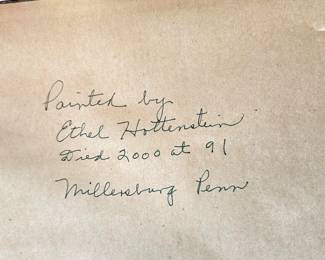 Painted by
Ethel Hottenstein
Died 2000 at 91
Millersburg Penn